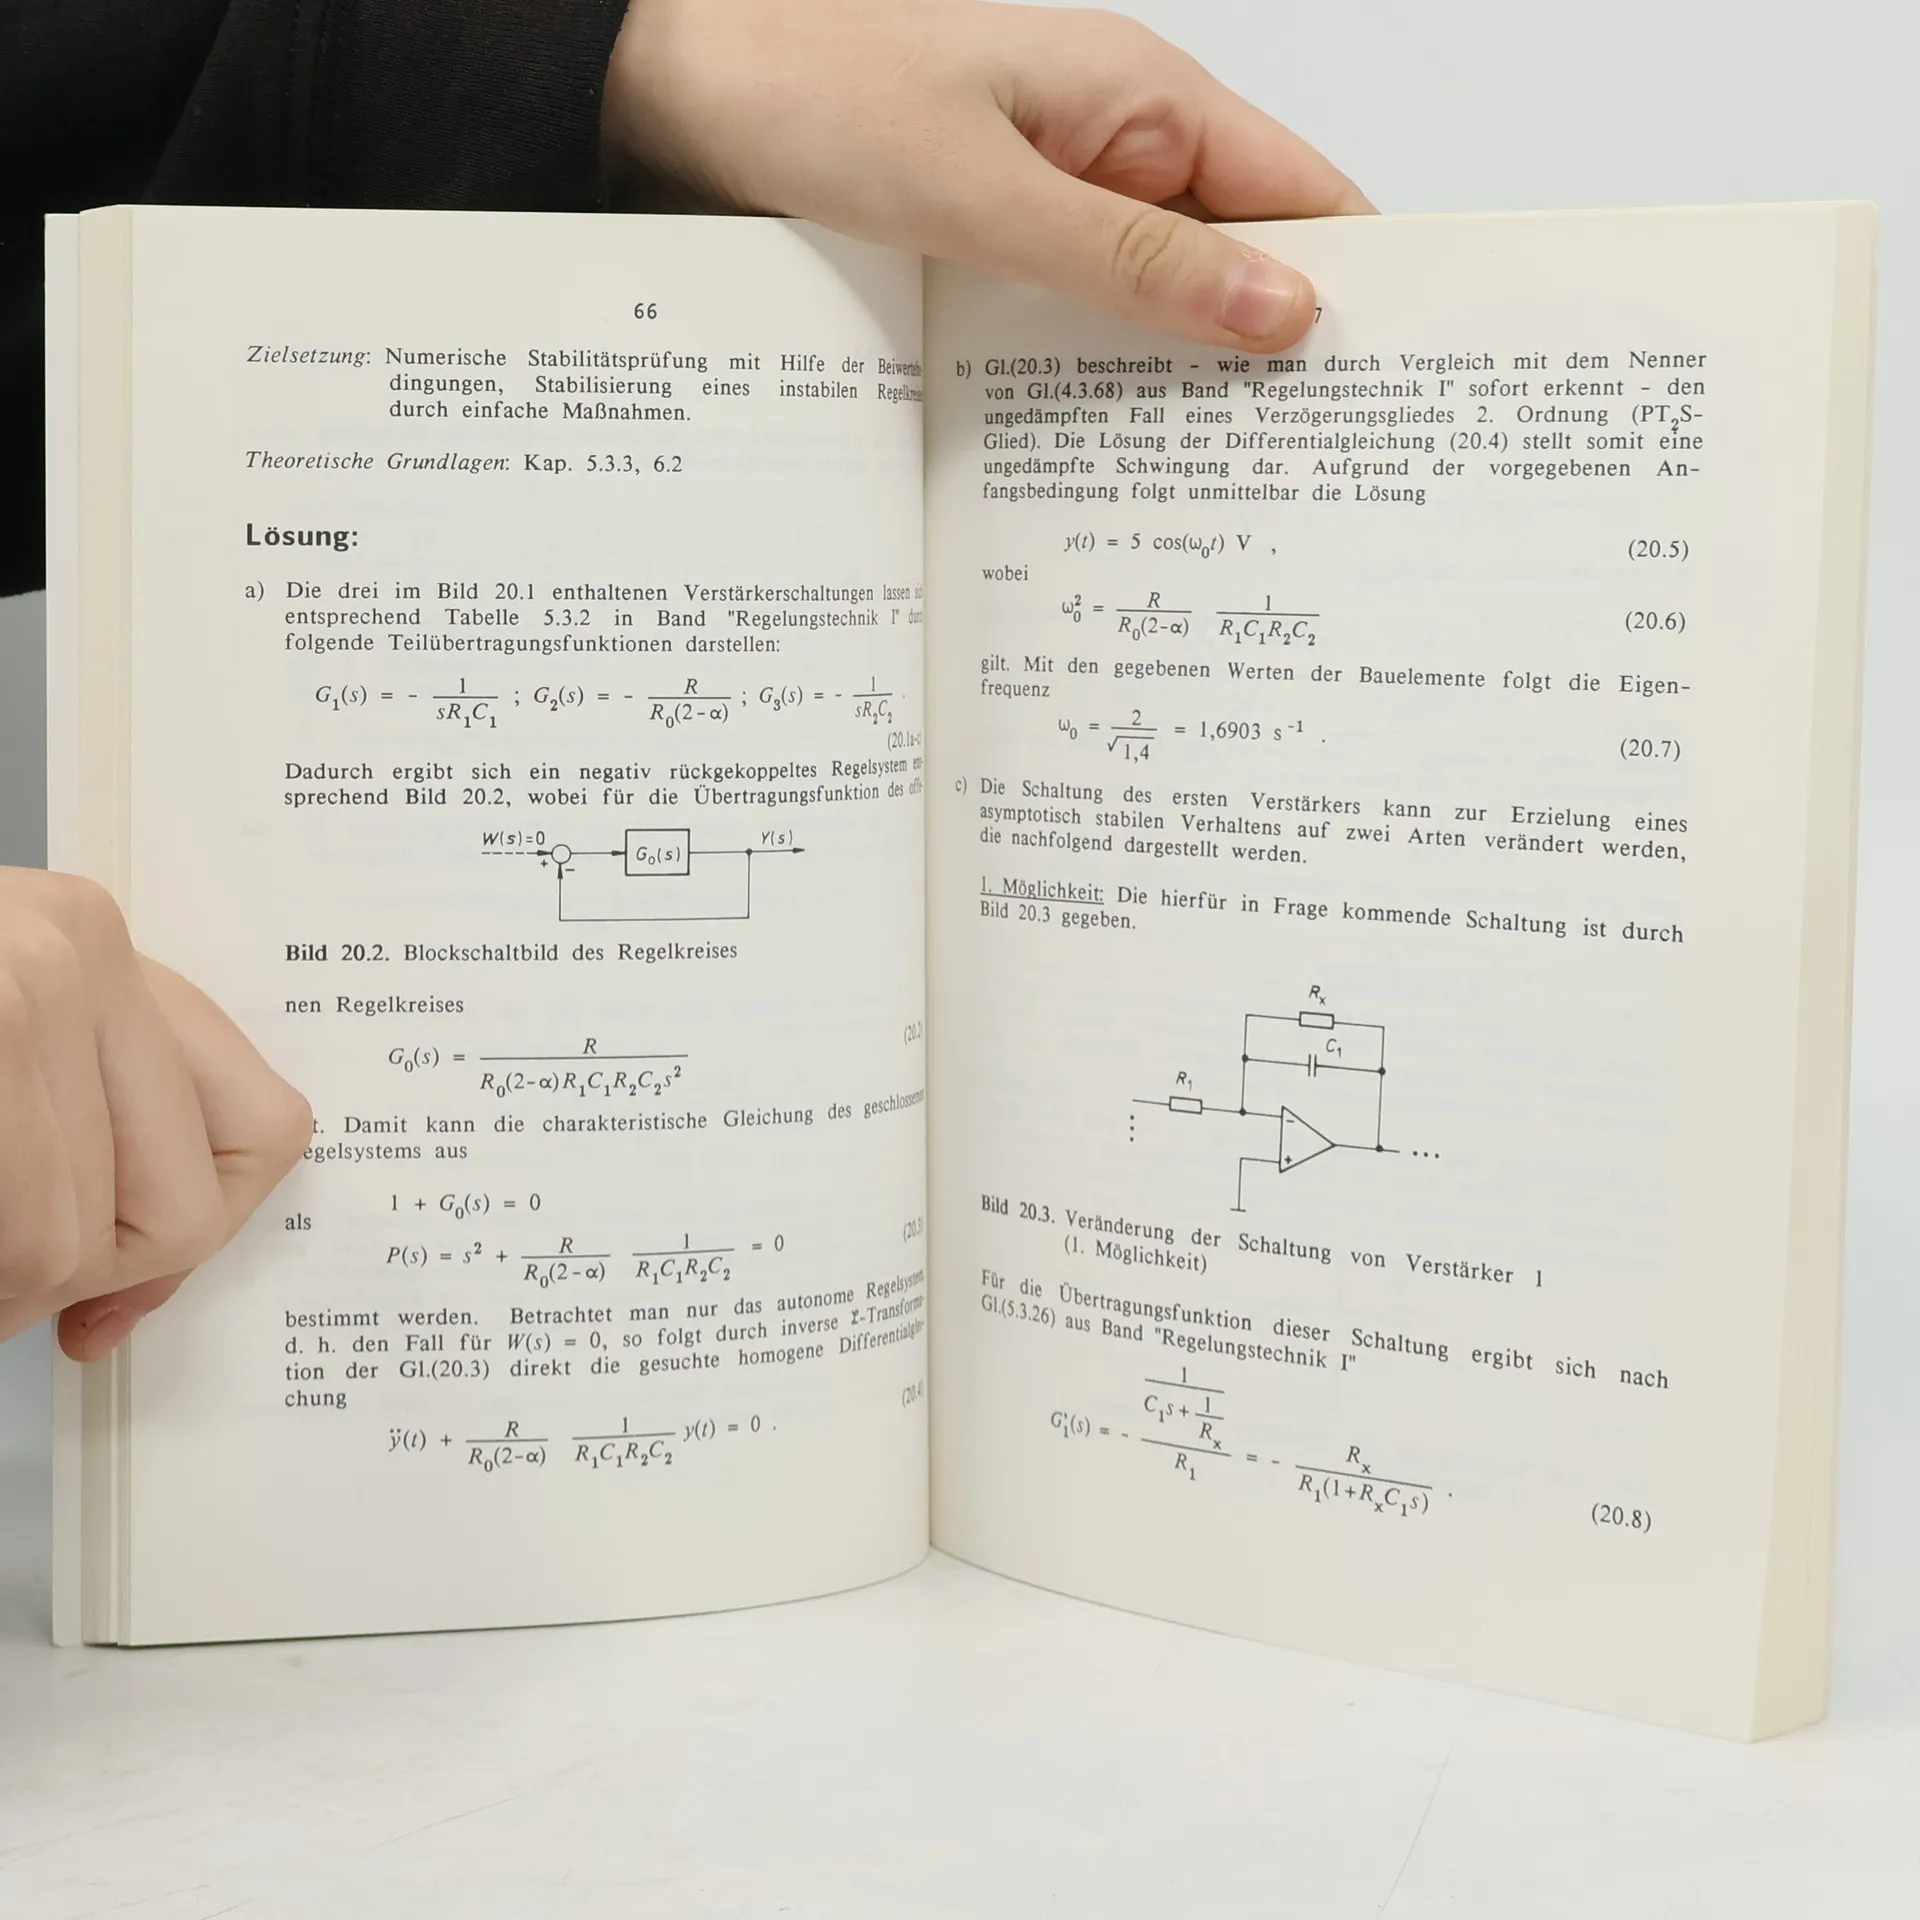 66
Zielsetzung: Numerische Stabilitätsprüfung mit Hilfe der
dingungen, Stabilisierung eines instabilen
durch einfache Maßnahmen.
Theoretische Grundlagen: Kap. 5.3.3, 6.2
Lösung:
a) Die drei im Bild 20.1 enthaltenen Verstärkerschaltungen lassen
entsprechend Tabelle 5.3.2 in Band "Regelungstechnik I"
folgende Teilübertragungsfunktionen darstellen:
G₁(s) = - 1/(sR₁C₁) ; G₂(s) = - R/(R₀(2-α)) ; G₃(s) = - 1/(sR₂C₂) .
Dadurch ergibt sich ein negativ rückgekoppeltes Regelsystem
sprechend Bild 20.2, wobei für die Übertragungsfunktion des
W(s)=0 + - G₀(s) Y(s)
Bild 20.2. Blockschaltbild des Regelkreises
nen Regelkreises
G₀(s) = R/(R₀(2-α)R₁C₁R₂C₂s²)
t. Damit kann die charakteristische Gleichung des geschlossenen
egelsystems aus
1 + G₀(s) = 0
als
P(s) = s² + R/(R₀(2-α)) 1/(R₁C₁R₂C₂) = 0
bestimmt werden. Betrachtet man nur das autonome Regelsystem
d. h. den Fall für W(s) = 0, so folgt durch inverse ℒ-Transforma-
tion der Gl.(20.3) direkt die gesuchte homogene Differentialglei-
chung
ÿ(t) + R/(R₀(2-α)) 1/(R₁C₁R₂C₂) y(t) = 0 .
7
b) Gl.(20.3) beschreibt - wie man durch Vergleich mit dem Nenner
von Gl.(4.3.68) aus Band "Regelungstechnik I" sofort erkennt - den
ungedämpften Fall eines Verzögerungsgliedes 2. Ordnung (PT₂S-
Glied). Die Lösung der Differentialgleichung (20.4) stellt somit eine
ungedämpfte Schwingung dar. Aufgrund der vorgegebenen An-
fangsbedingung folgt unmittelbar die Lösung
y(t) = 5 cos(ω₀t) V , (20.5)
wobei
ω₀² = R/(R₀(2-α)) 1/(R₁C₁R₂C₂) (20.6)
gilt. Mit den gegebenen Werten der Bauelemente folgt die Eigen-
frequenz
ω₀ = 2/√1,4 = 1,6903 s⁻¹ . (20.7)
c) Die Schaltung des ersten Verstärkers kann zur Erzielung eines
asymptotisch stabilen Verhaltens auf zwei Arten verändert werden,
die nachfolgend dargestellt werden.
1. Möglichkeit: Die hierfür in Frage kommende Schaltung ist durch
Bild 20.3 gegeben.
Rₓ
C₁
R₁
-
+
Bild 20.3. Veränderung der Schaltung von Verstärker 1
(1. Möglichkeit)
Für die Übertragungsfunktion dieser Schaltung ergibt sich nach
Gl.(5.3.26) aus Band "Regelungstechnik I"
G₁'(s) = - (1/(C₁s + 1/Rₓ))/R₁ = - Rₓ/(R₁(1+RₓC₁s)) . (20.8)